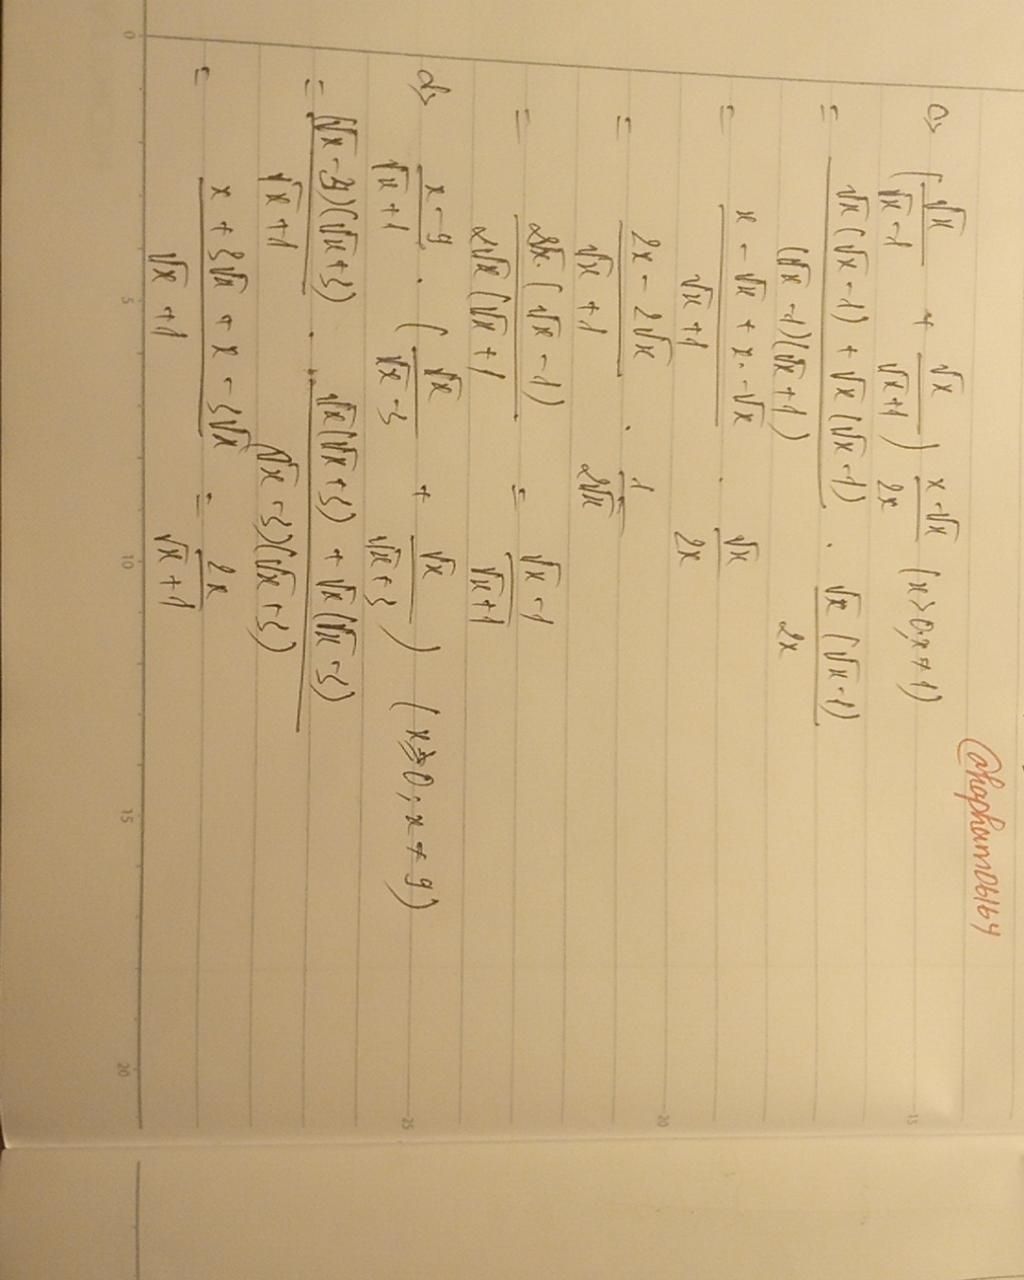 @haphum06164
c> (√x/(√x-1) + √x/(√x+1)) (x-√x)/2x (x>0; x≠1)
= (√x(√x-1) + √x(√x-1))/((√x-1)(√x+1)) . √x(√x-1)/2x
= (x-√x+x-√x)/(√x+1) . √x/2x
= (2x-2√x)/(√x+1) . 1/2√x
= 2√x.(√x-1)/2√x(√x+1 = (√x-1)/(√x+1)
d> (x-9)/(√x+1) . (√x/(√x-3) + √x/(√x+3)) (x≥0; x≠9)
= (√x-3)(√x+3)/(√x+1) . (√x(√x+3) + √x(√x-3))/((√x-3)(√x+3))
= (x+3√x+x-3√x)/(√x+1) = 2x/(√x+1)
0
5
10
15
20
15
20
25